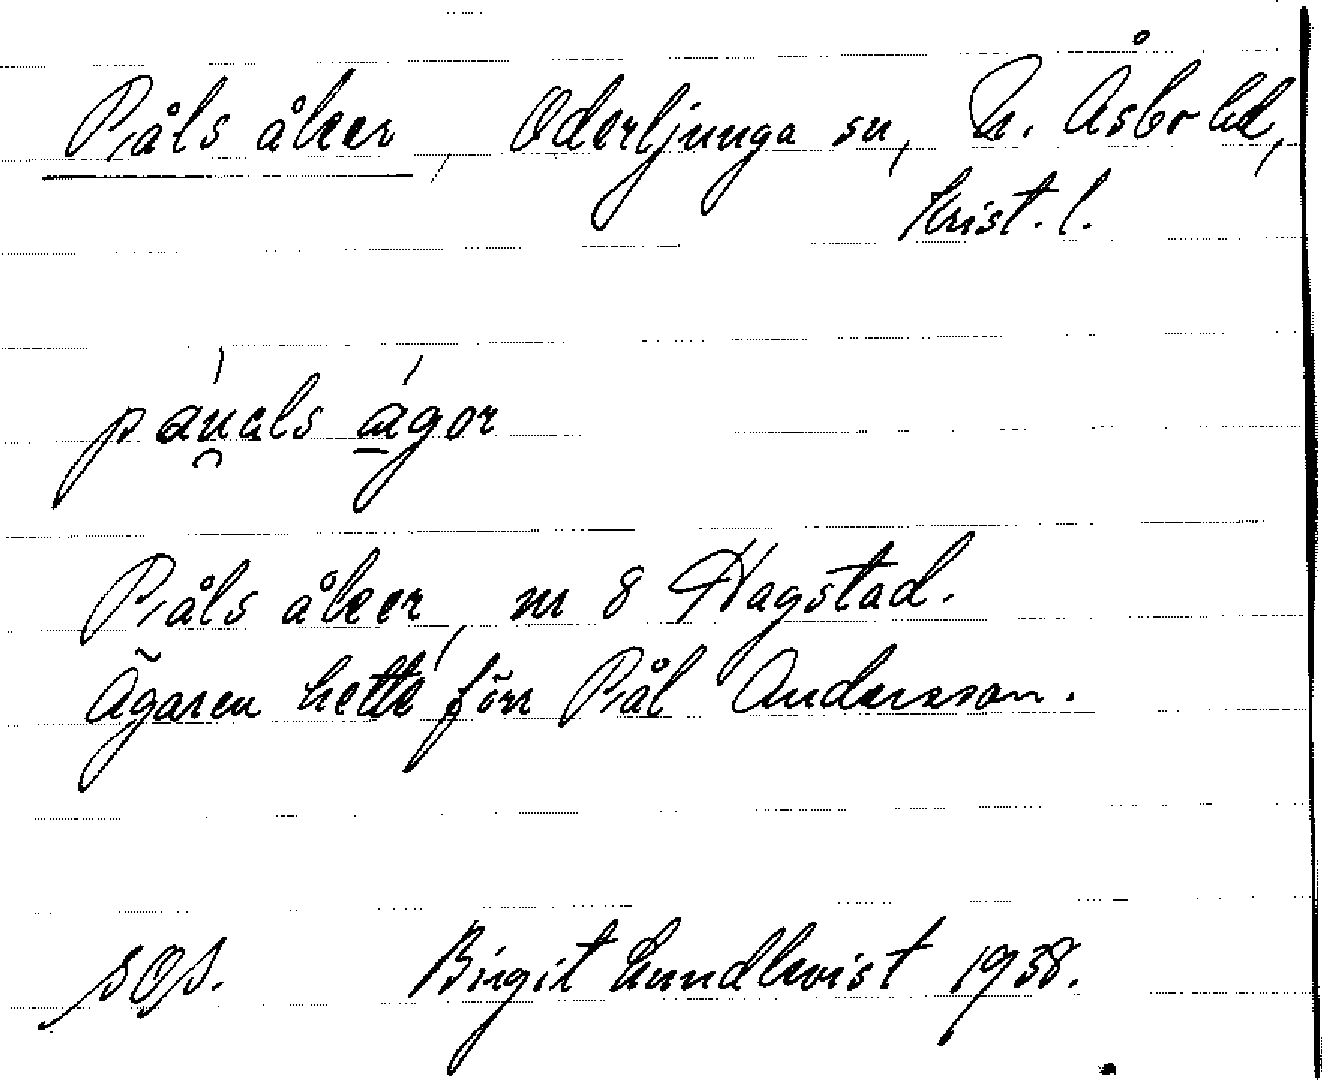 Påls åker, Oderljunga sn, N. Åsbo hd,
Krist. l.
páu̯als ágor
Påls åker, nr 8 Hagstad.
Ägaren hette förr Pål Andersson.
sOs. Birgit Lundkvist 1938.